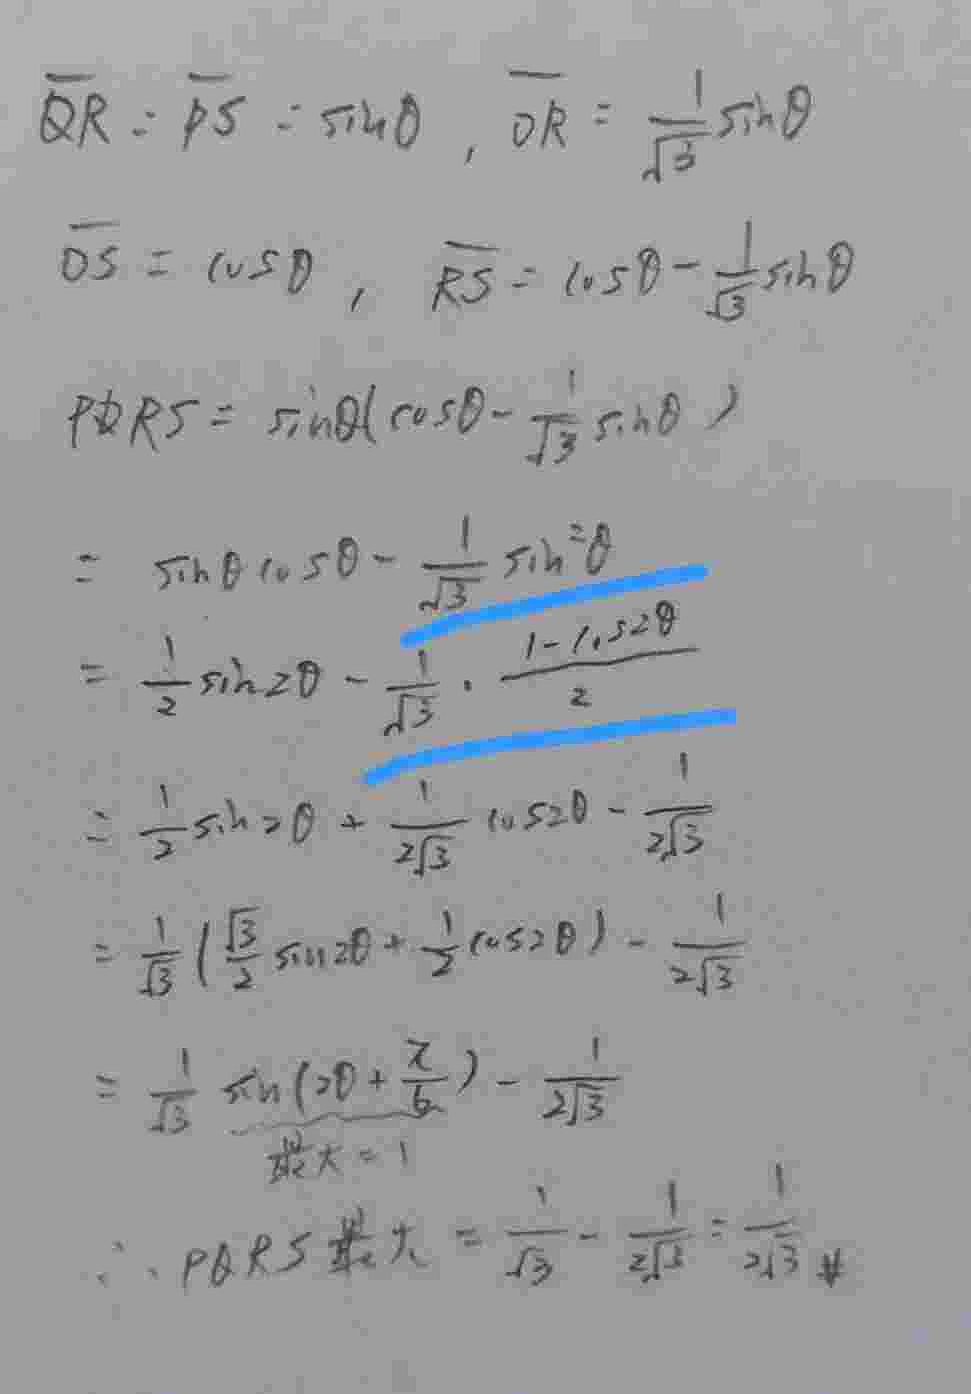 Q̅R̅ = P̅S̅ = sinθ , O̅R̅ = 1/√3 sinθ
O̅S̅ = cosθ , R̅S̅ = cosθ - 1/√3 sinθ
PQRS = sinθ(cosθ - 1/√3 sinθ)
= sinθcosθ - 1/√3 sin²θ
= 1/2 sin2θ - 1/√3 · (1-cos2θ)/2
= 1/2 sin2θ + 1/(2√3) cos2θ - 1/(2√3)
= 1/√3 (√3/2 sin2θ + 1/2 cos2θ) - 1/(2√3)
= 1/√3 sin(2θ + π/6) - 1/(2√3)
最大 = 1
∴ PQRS最大 = 1/√3 - 1/(2√3) = 1/(2√3) #